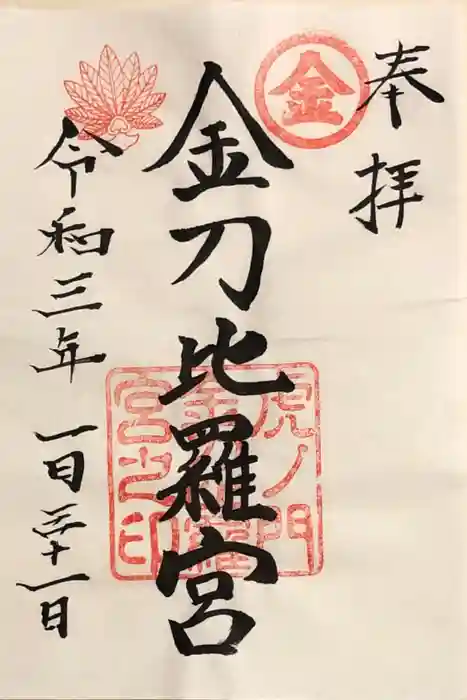 奉拝
金
金刀比羅宮
虎ノ門
金刀比羅
宮之印
令和三年 一月三十一日